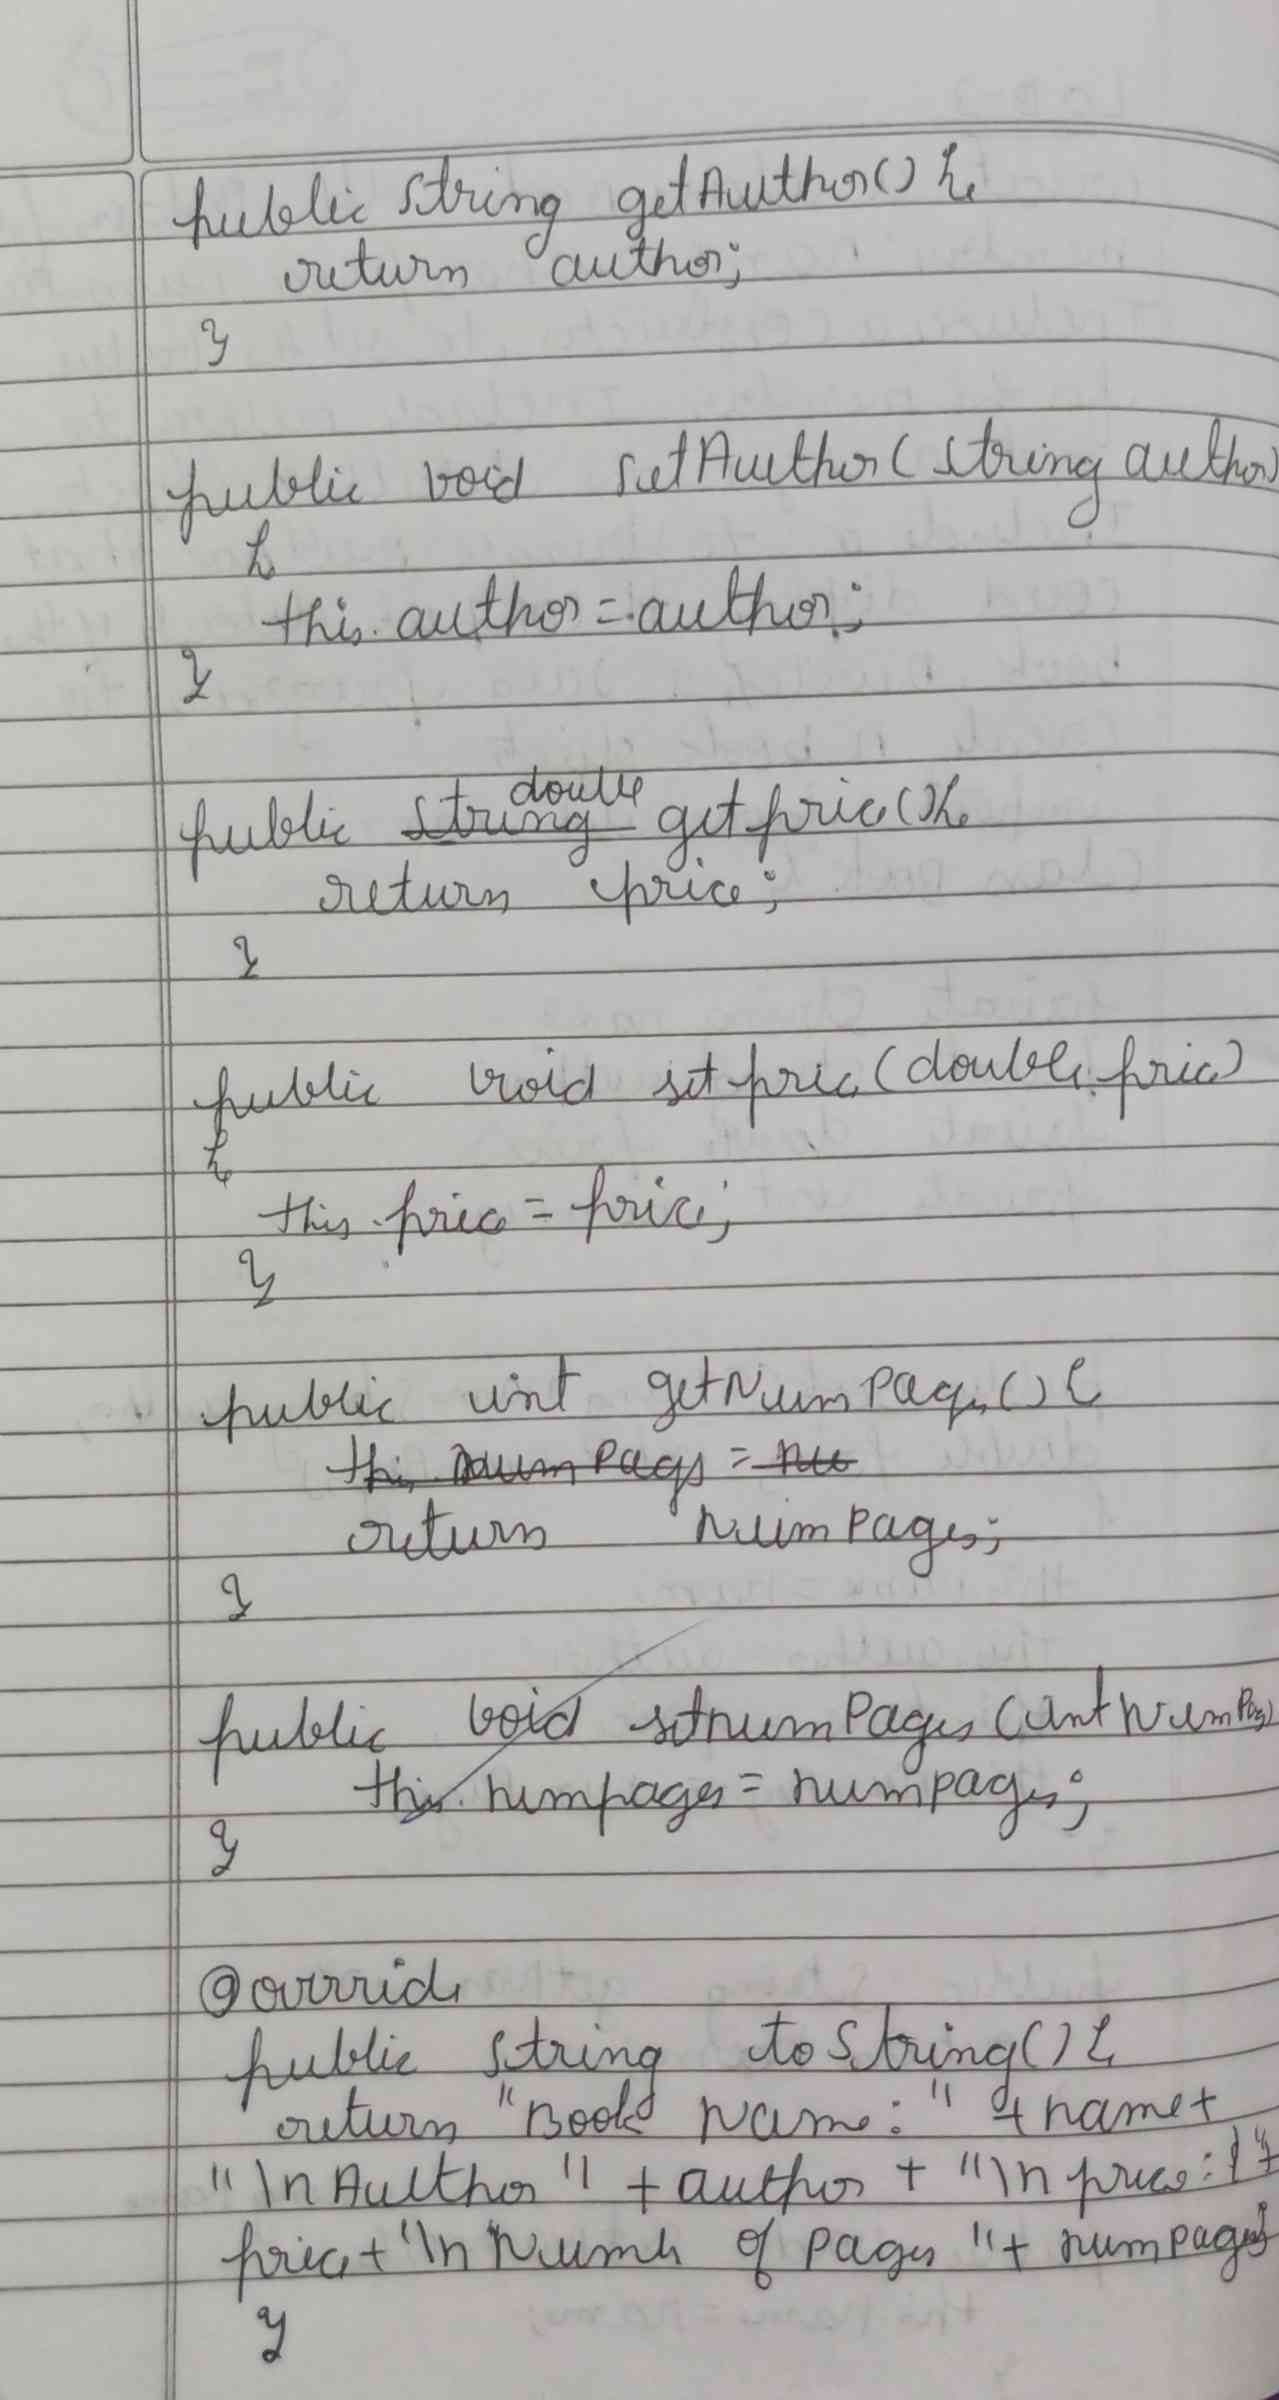 public String getAuthor(){
return author;
}
public void setAuthor(String author)
{
this.author = author;
}
public String double getprice(){
return price;
}
public void setprice(double price)
{
this.price = price;
}
public int getNumPages(){
this numPages = nu
return NumPages;
}
public void setnumPages(int NumPag)
this.numpages = numpages;
}
@override
public String toString(){
return "Book Name: " + name +
"\n Author " + author + "\n price: " +
price + "\n Numb of pages " + numpages;
}